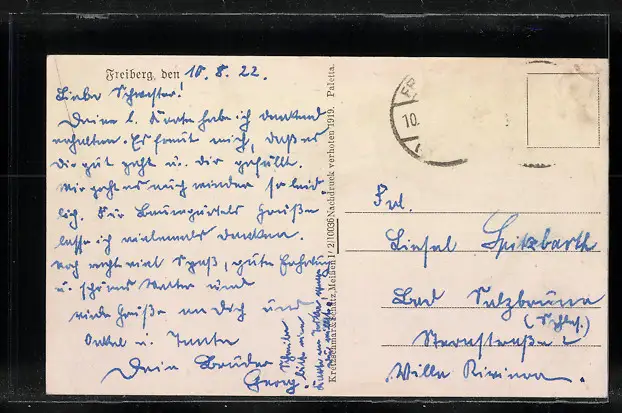 Freiberg, den 10. 8. 22.
Liebe Schwester!
Deine l. Karte habe ich dankend
erhalten. Es freut mich, daß es
dir gut geht u. dir gefällt.
Mir geht es auch wieder so leid-
lich. Für Baumgärtels Grüße
lasse ich vielmals danken.
Noch recht viel Spaß, gute Erholung
u. schönes Wetter und
viele Grüße an Dich und
Onkel u. Tante
Dein Bruder
Georg.
Schreibe
bitte eine
Kretzschmar & Schatz, Meißen I/2/10036 Nachdruck verboten 1919. Paletta.
10.
Frl.
Liesel Spitzbarth
Bad Salzbrunn
(Schles.)
Sternstraße
Villa Riviera.